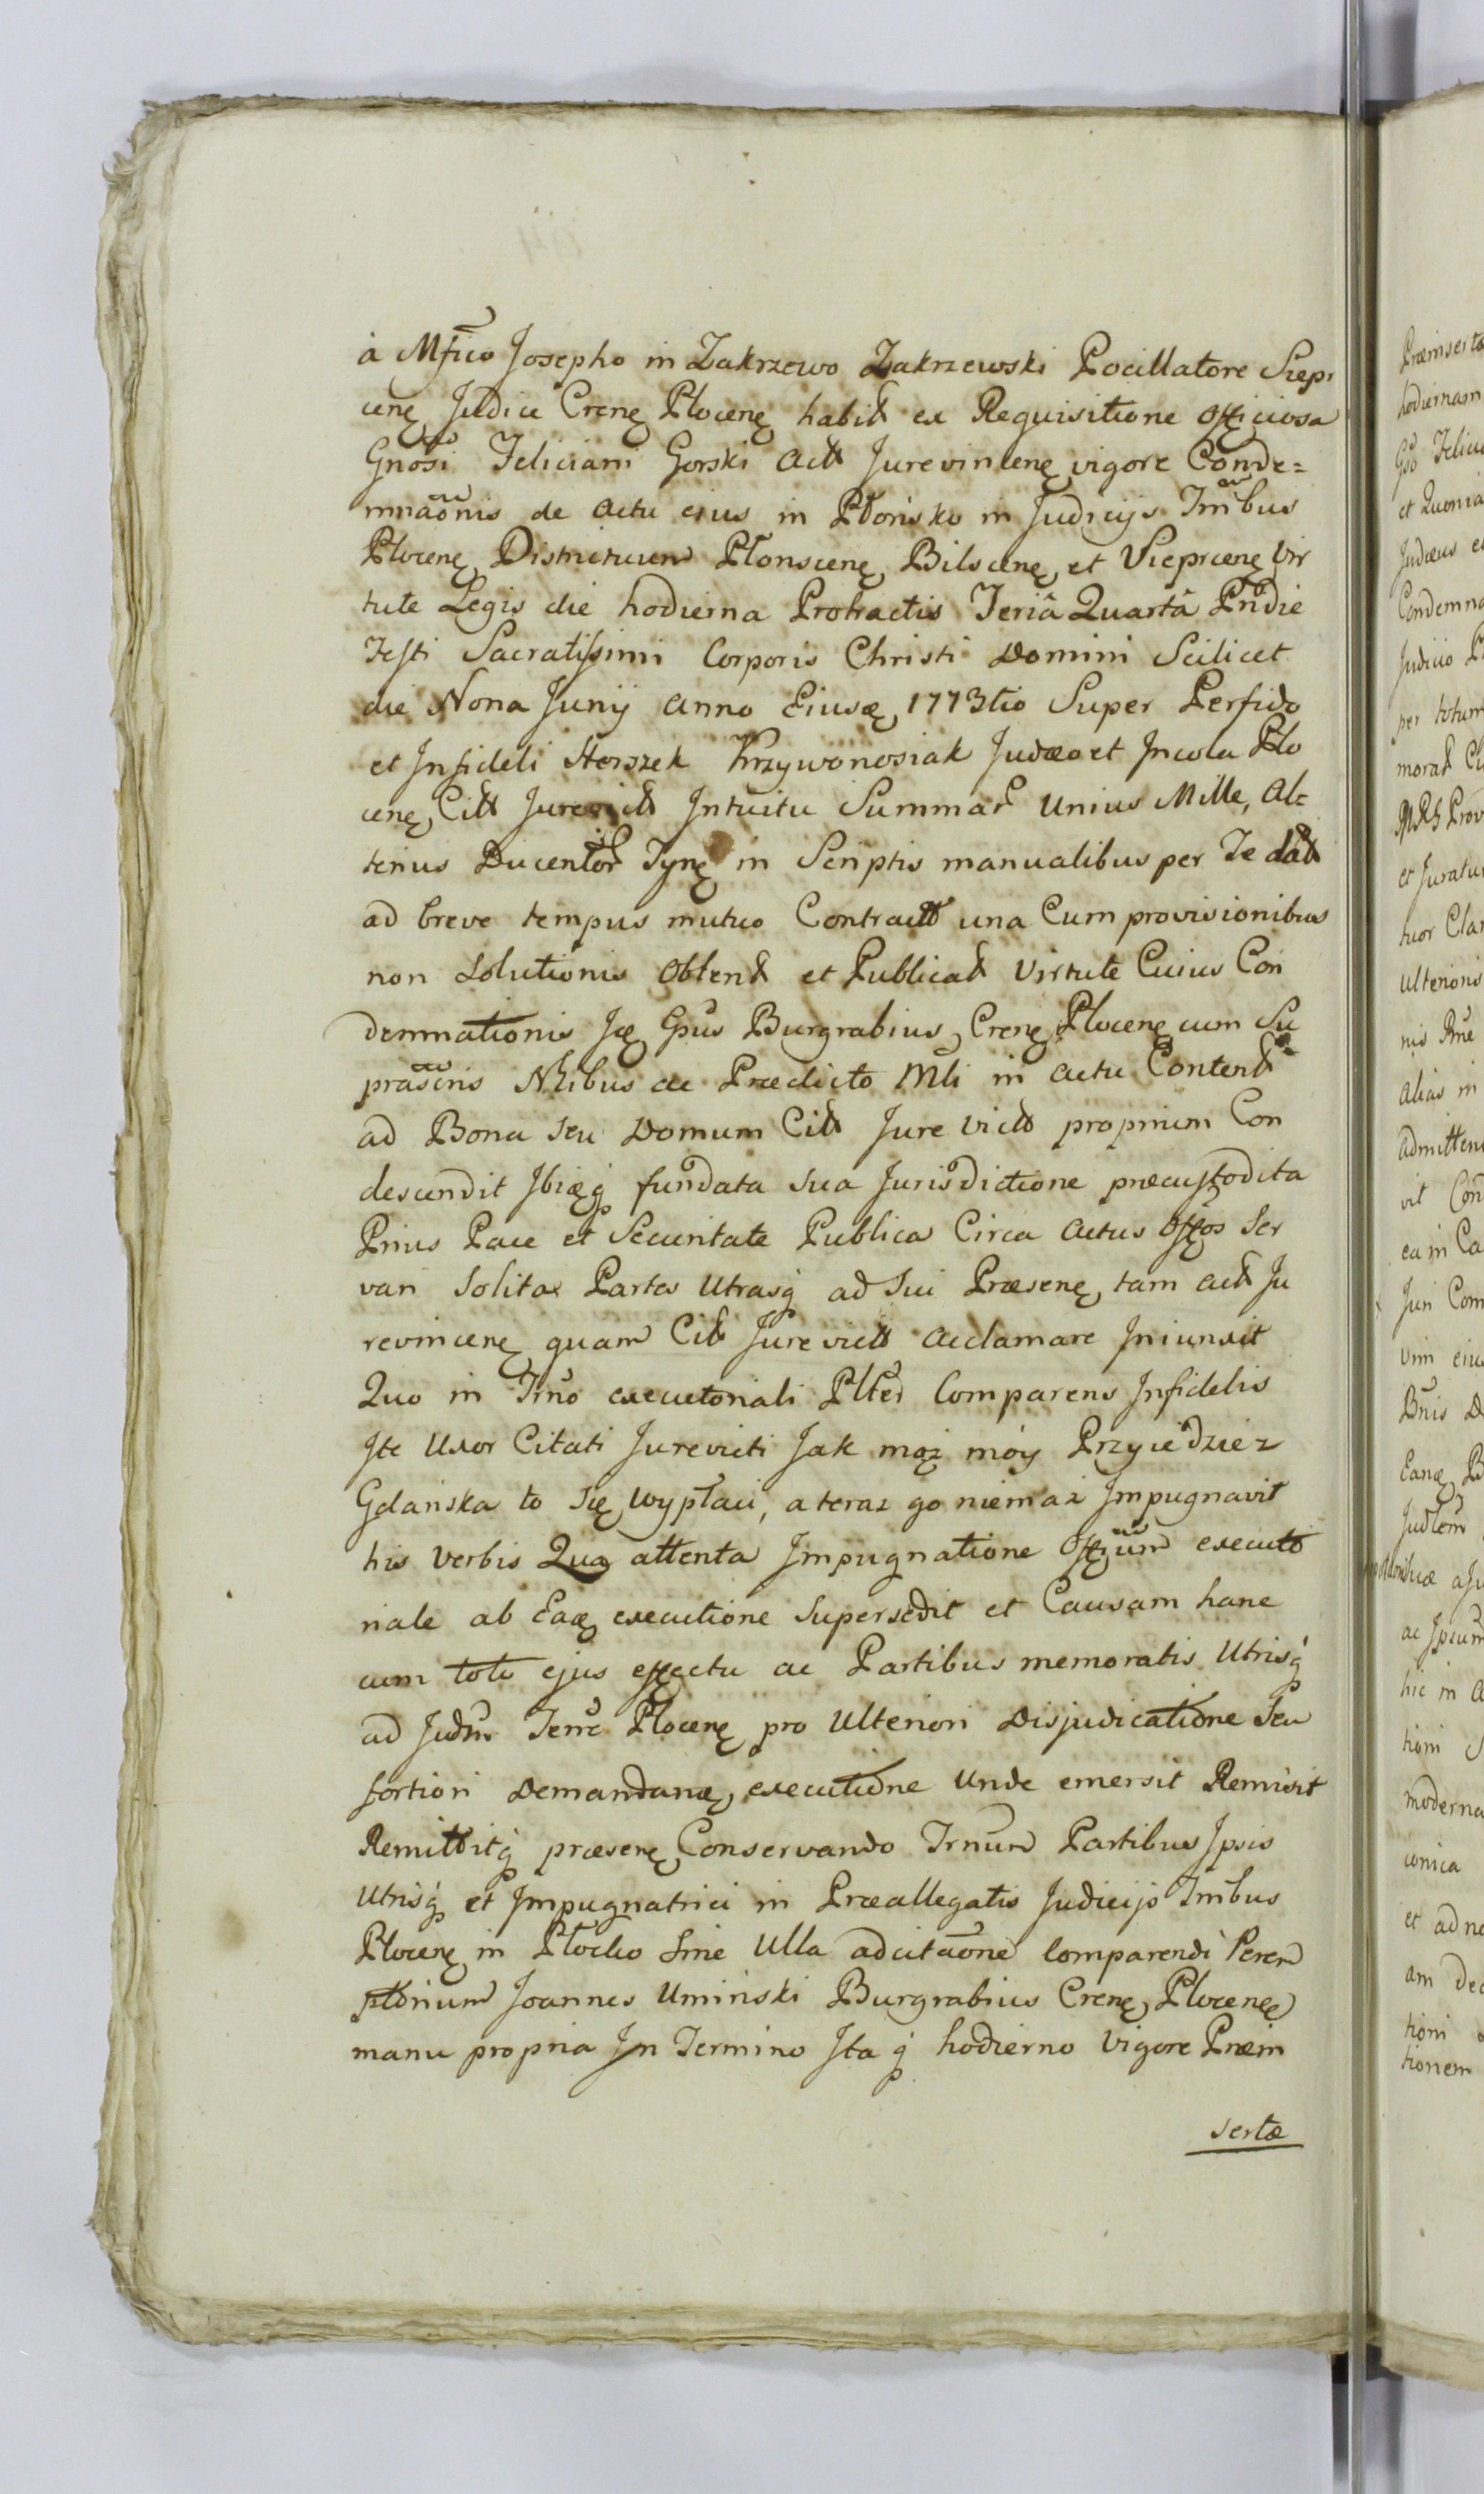 à Mfico Josepho in Zakrzewo Zakrzewski Pocillatore Siepr
cenę Judice Crenę Plocenę habitt ex Requisitione officiosa
Gnosi Feliciani Gorski Actt Jurevincenę vigore Conde=
mnaõnis de actu eius in Płońsko in Judicijs Tmibus
Plocenę Districtuum Płonscenę, Bilscenę, et Sieprcenę Vir
tute Legis die hodierna Protractis Feriâ Quartâ Pridie
Festi Sacratissimi Corporis Christi Domini Scilicet
die Nona Junij Anno Eiusdę 1773tio Super Perfido
et Infideli Herszek Krzywonosiak Judæo et Incola Plo
cenę Citt Jurevictt Intuitu Summar Unius Mille, Al=
terius Ducentor Tynę in Scriptis manualibus per Te datt
ad breve tempus mutuo Contractt una Cum provisionibus
non Solutionis Obtentt et Publicatt Virtute Cuius Con
demnationis Ję Gsus Burgrabius Crenę Plocenę cum Su
prascris Nbilibus ac Prædicto Mli in actu Contentt
ad Bona seu Domum Citt Jure victt proprium Con
descendit Ibięq fundata sua Jurisdictione præcustodita
Prius Pace et Securitate Publica Circa Actus Offos Ser
vari Solitæ Partes Utrasq ad Sui Præsenę tam Actt Ju
revincenę quam Citt Jure victt acclamare Iniunxit
Quo in Tmo executoriali Plter Comparens Infidelis
Ite Uxor Citati Jurevicti Jak mąż móy Przyiedzie z
Gdańska to się wypłaci, a teraz go niemasz Impugnavit
his Verbis Qua attenta Impugnatione Offium executo
riale ab Eadę executione Supersedit et Causam hanc
cum toto ejus effectu ac Partibus memoratis Utrisq
ad Judm Terre Plocenę pro Ulteriori Disjudicatione Seu
fortiori Demandanę executione Unde emersit Remisit
Remittitq præsenę Conservando Trnum Partibus Ipsis
Utrisq et Impugnatrici in Præallegatis Judicijs Tmibus
Plocenę in Płocko Sine Ulla adcitaõne Comparendi Perem
ptorium Joannes Uminski Burgrabius Crenę Plocenę
manu propria In Termino Itaq hodierno Vigore Præin
sertæ